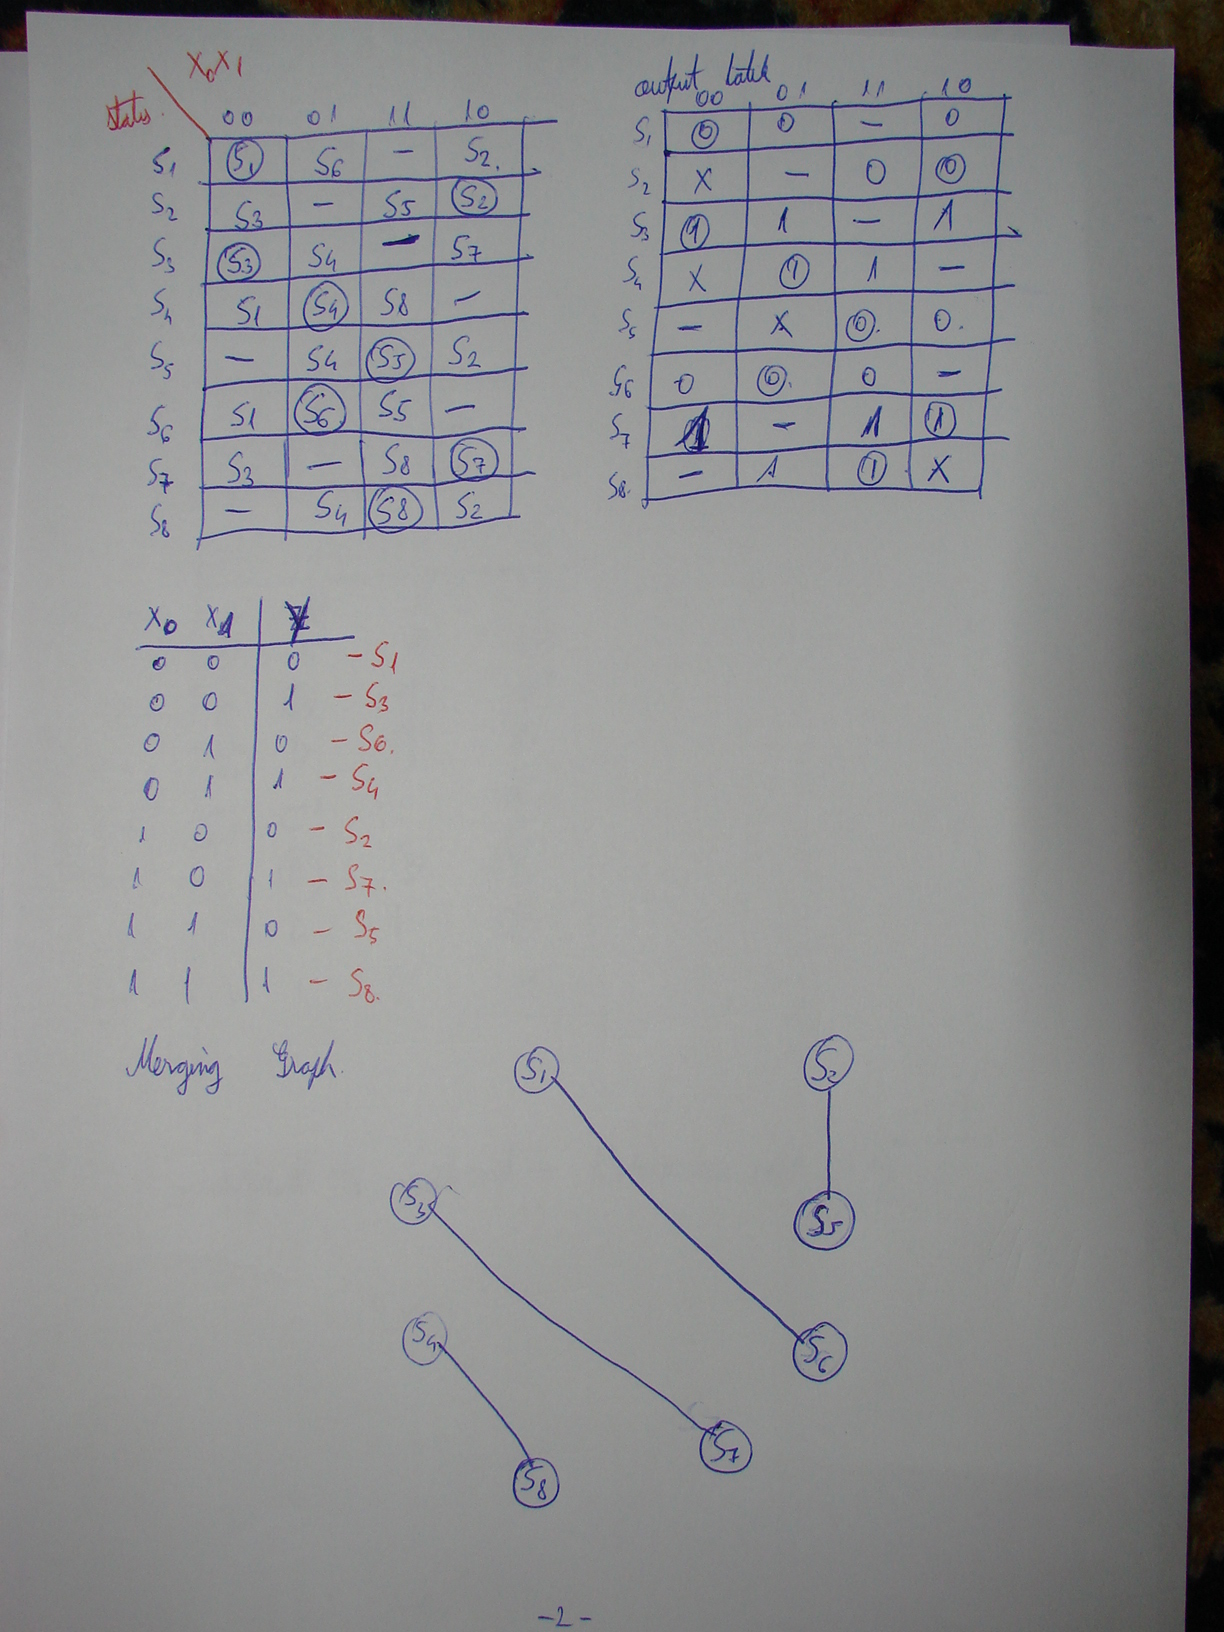 X₀X₁
states.
00 01 11 10
S1 S1 S6 — S2.
S2 S3 — S5 S2
S3 S3 S4 — S7
S4 S1 S4 S8 —
S5 — S4 S5 S2
S6 S1 S6 S5 —
S7 S3 — S8 S7
S8 — S4 S8 S2
output
00 01 11 10
S1 0 0 — 0
S2 X — 0 0
S3 1 1 — 1
S4 X 1 1 —
S5 — X 0. 0.
S6 0 0. 0 —
S7 1 — 1 1
S8. — 1 1 X
X0 X1 Y
0 0 0 — S1
0 0 1 — S3
0 1 0 — S6.
0 1 1 — S4
1 0 0 — S2
1 0 1 — S7.
1 1 0 — S5
1 1 1 — S8.
Merging Graph.
S1 S2
S3 S5
S4 S6
S7
S8
-2-